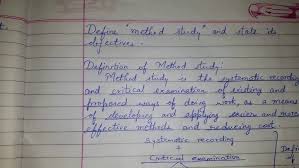 Define "method study" and state its
objectives.
Definition of Method Study:
Method study is the systematic recording
and critical examination of existing and
proposed ways of doing work, as a means
of developing and applying easier and more
effective methods and reducing cost.
Systematic recording
+
Critical examination